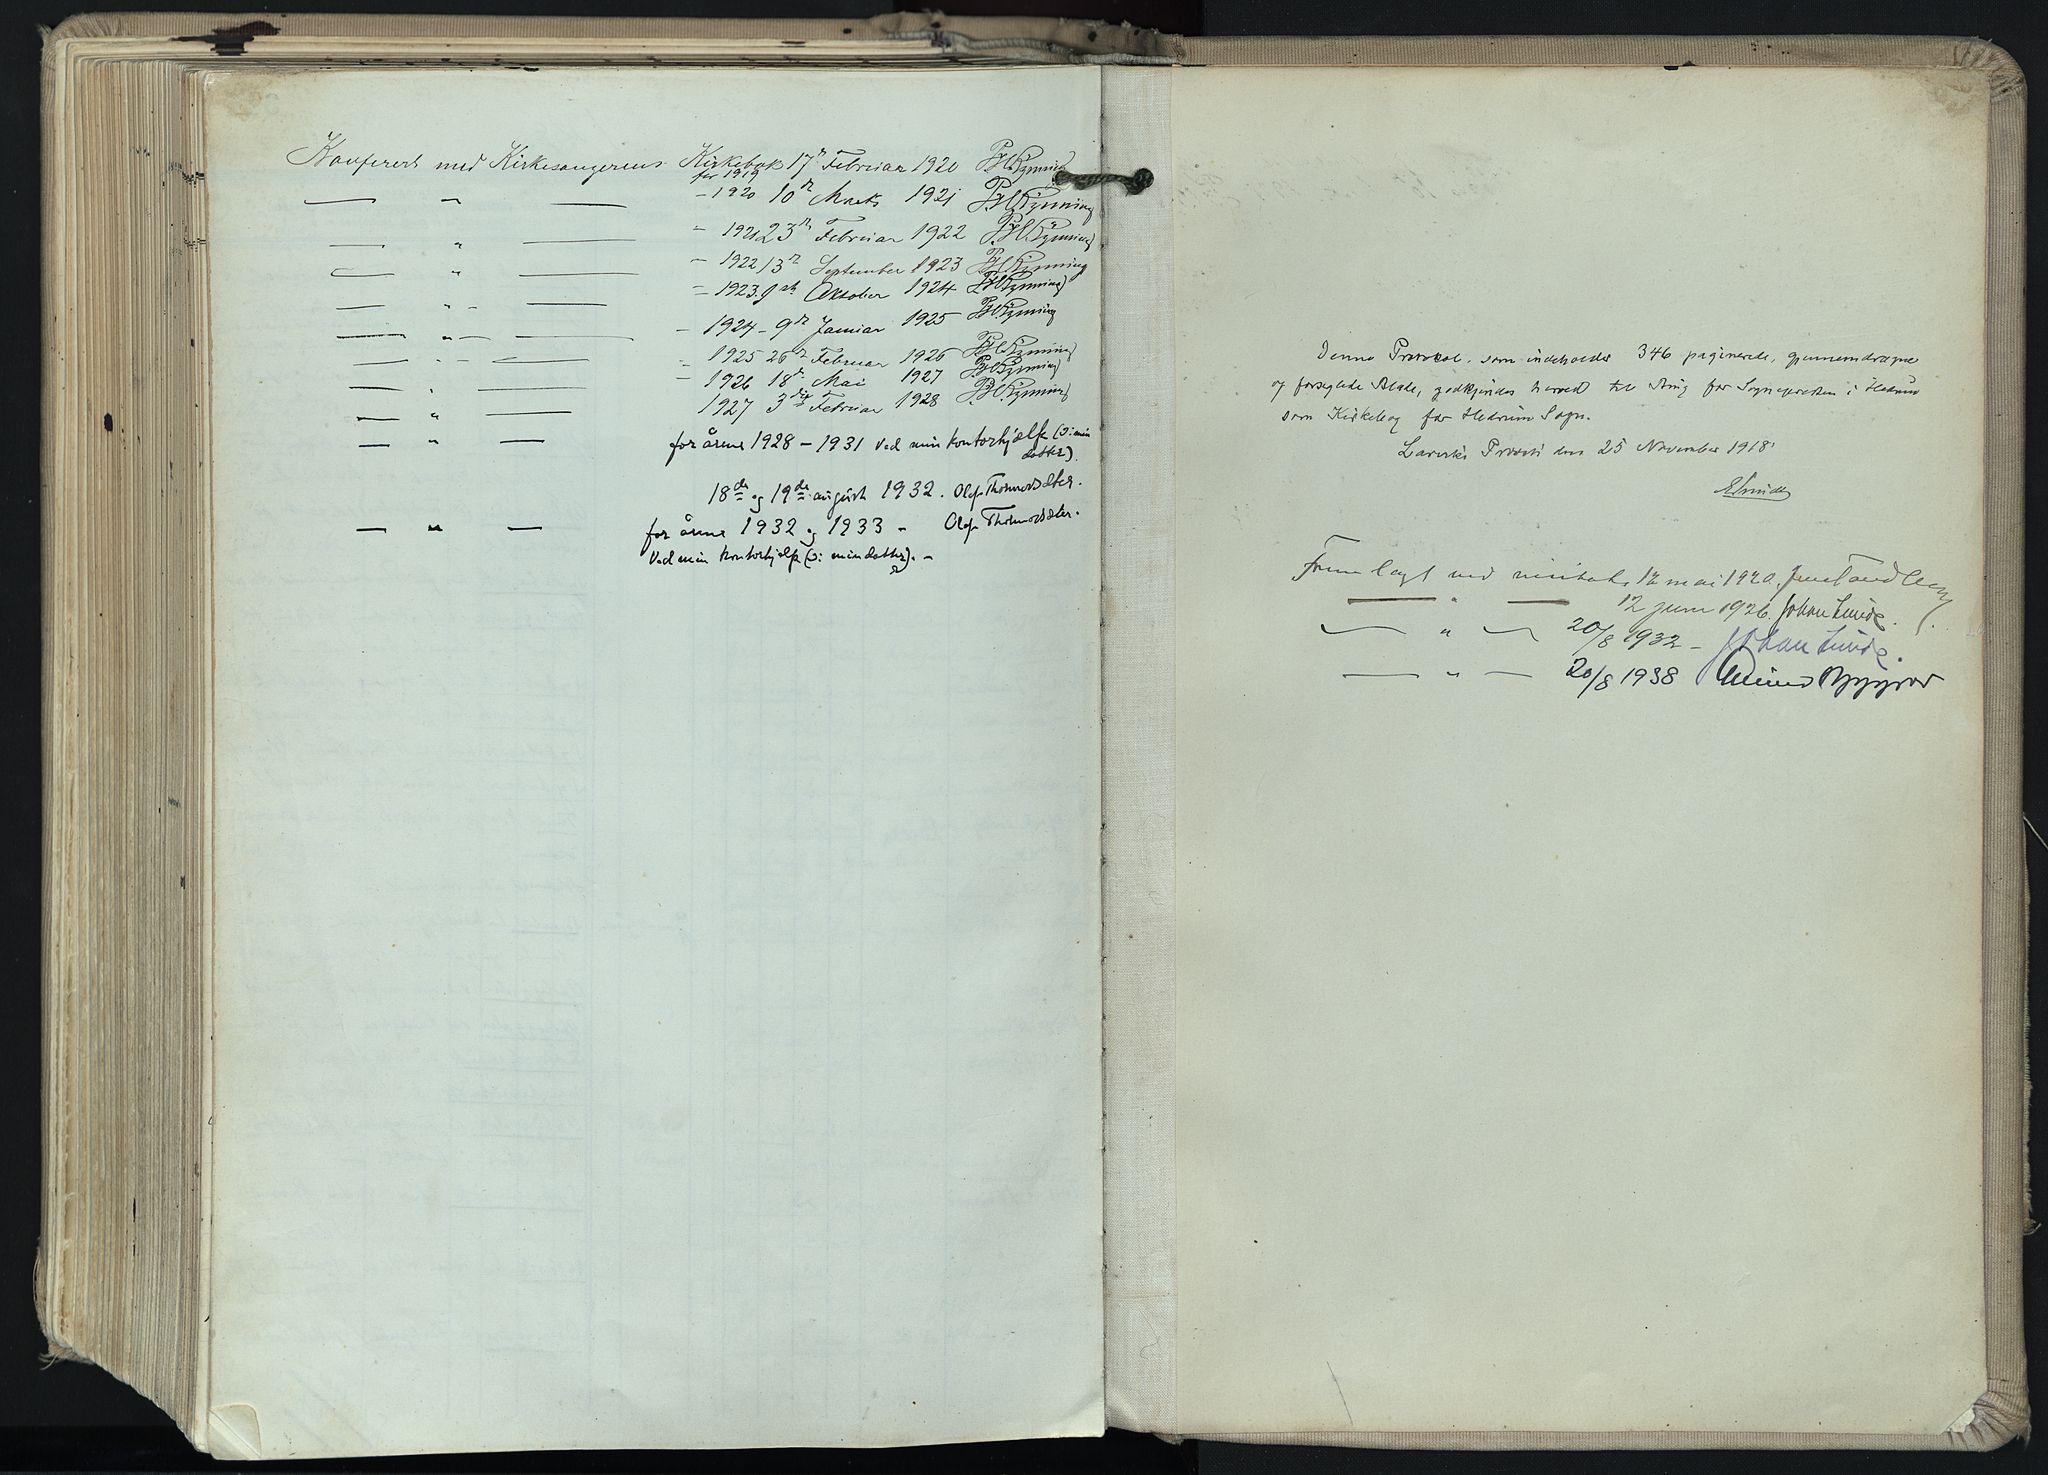 Konferert med Kirkesangerens Kirkebok 17de Februar 1920 P.H. Rynning
for 1919
— " — - 1920 10de Marts 1921 P.H. Rynning
— " — - 1921 23de Februar 1922 P.H. Rynning
— " — - 1922 13de September 1923 P.H. Rynning
— " — - 1923. 9de Oktober 1924 P.H. Rynning
— " — - 1924 - 9de Januar 1925 P.H. Rynning
— " — - 1925 26de Februar 1926 P.H. Rynning
— " — - 1926 18de Mai 1927 P.H. Rynning
— " — 1927 3die Februar 1928 P.H. Rynning
— " — for årene 1928 – 1931 ved min kontorhjælp (ɔ: min
datter).
18de og 19de august 1932. Olaf Tholmodsæter.
— " — for årene 1932 og 1933 - Olaf Tholmodsæter.
Ved min kontorhjelp (ɔ: min datter). -
Denne Protokol, som indeholder 346 paginerede, gjennemdragne
og forseglede Blade, godkjendes herved til Brug for Sognepresten i Hedrum
som Kirkebog for Hedrum Sogn.
Larviks Provsti den 25 November 1918.
Fremlagt ved visitats 12 mai 1920. Jens Tandberg
— " — 12 juni 1926. Johan Lunde.
— " — 20/8 1932 - Johan Lunde.
— " — 20/8 1938 Eivind Berggrav